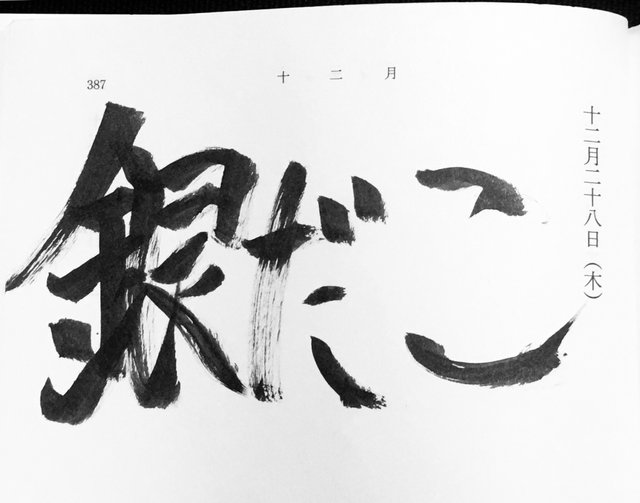 387
十二月
十二月二十八日（木）
銀だこ